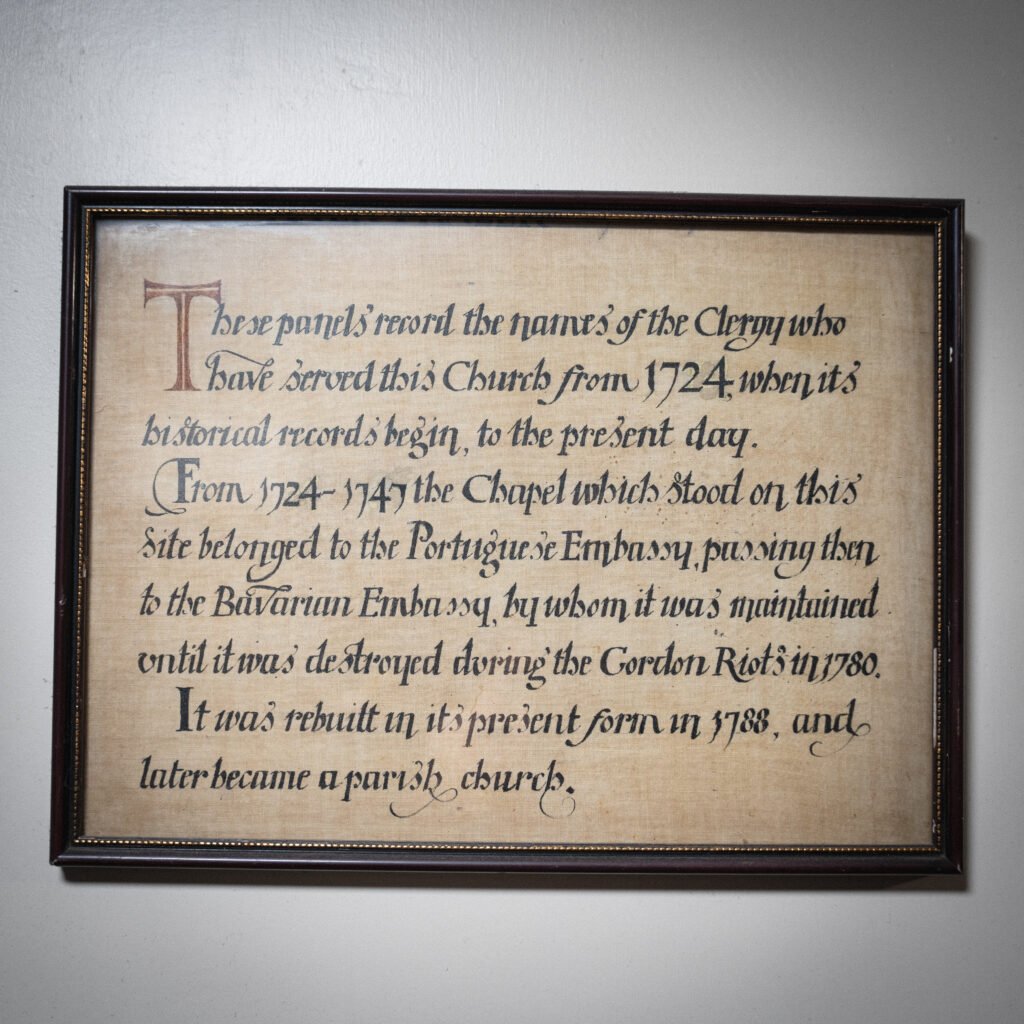 These panels record the names of the Clergy who
have served this Church from 1724, when its
historical records begin, to the present day.
From 1724-1747 the Chapel which stood on this
Site belonged to the Portuguese Embassy, passing then
to the Bavarian Embassy, by whom it was maintained
until it was destroyed during the Gordon Riots in 1780.
It was rebuilt in its present form in 1788, and
later became a parish church.